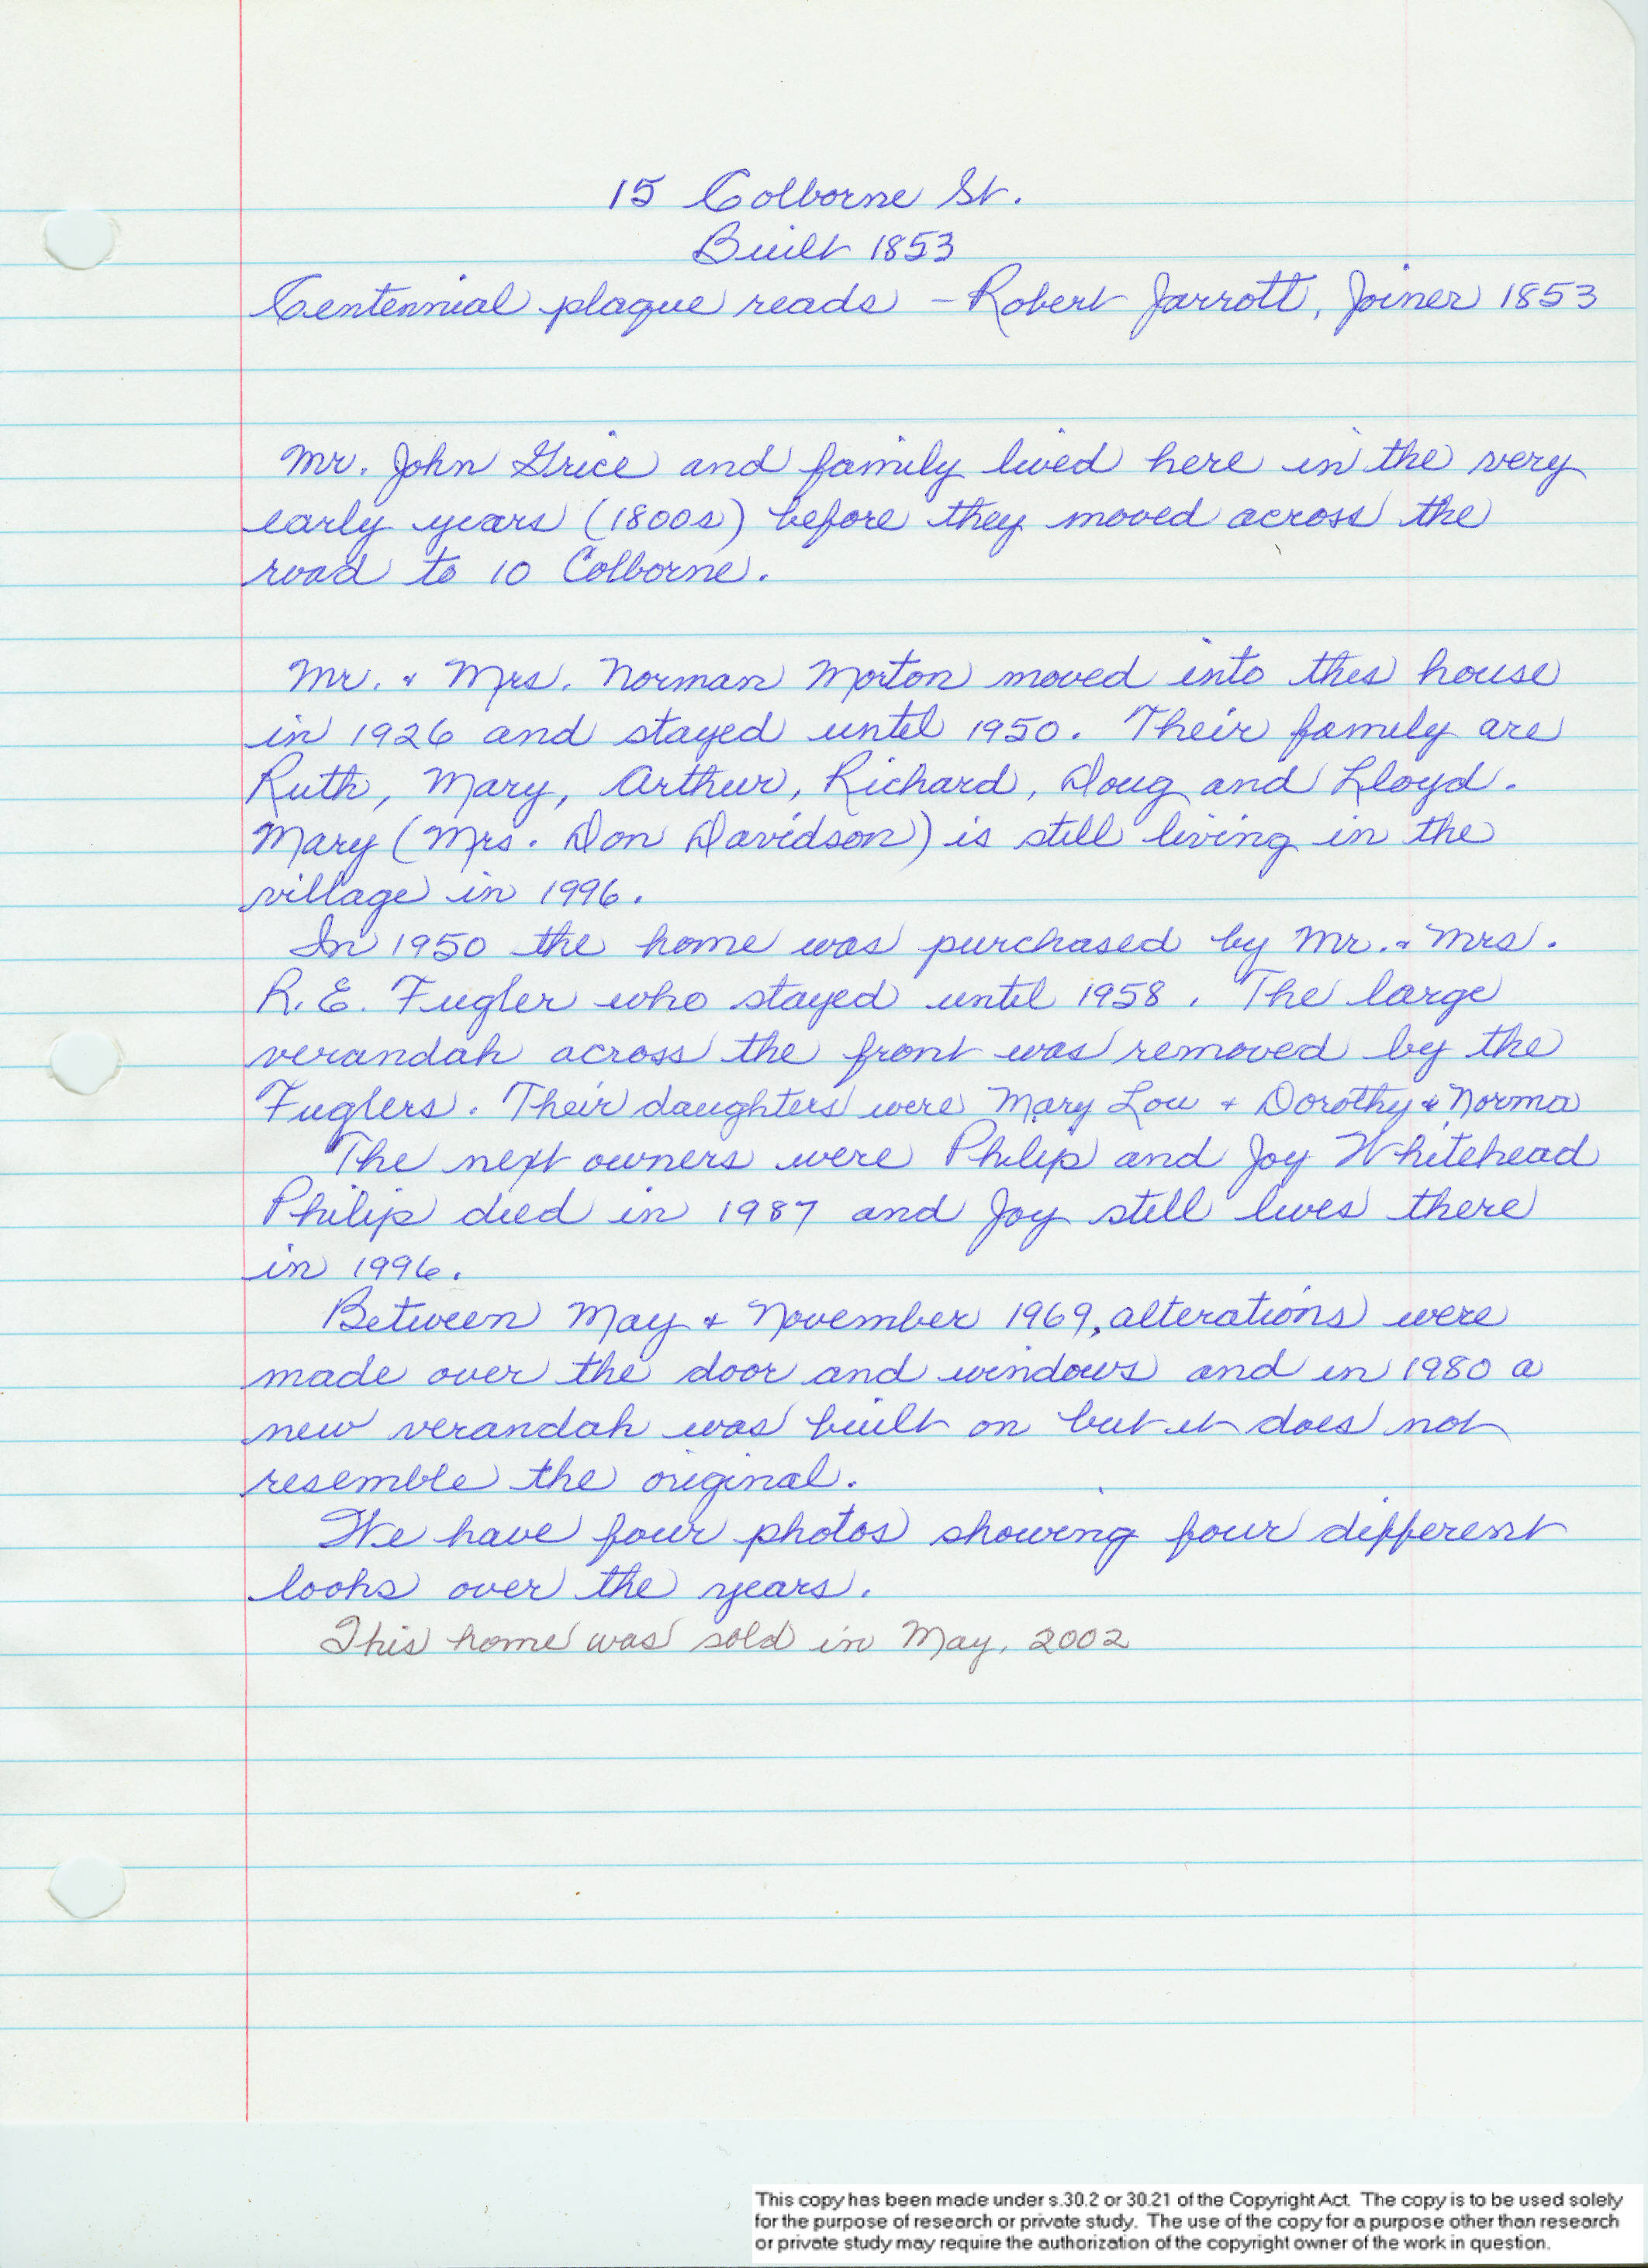 15 Colborne St.
Built 1853
Centennial plaque reads - Robert Jarrott, Joiner 1853
Mr. John Grice and family lived here in the very
early years (1800s) before they moved across the
road to 10 Colborne.
Mr. & Mrs. Norman Morton moved into this house
in 1926 and stayed until 1950. Their family are
Ruth, Mary, Arthur, Richard, Doug and Lloyd.
Mary (Mrs. Don Davidson) is still living in the
village in 1996.
In 1950 the home was purchased by Mr. & Mrs.
R. E. Fugler who stayed until 1958. The large
verandah across the front was removed by the
Fuglers. Their daughters were Mary Lou & Dorothy & Norma
The next owners were Philip and Joy Whitehead
Philip died in 1987 and Joy still lives there
in 1996.
Between May & November 1969, alterations were
made over the door and windows and in 1980 a
new verandah was built on but it does not
resemble the original.
We have four photos showing four different
looks over the years.
This home was sold in May, 2002
This copy has been made under s.30.2 or 30.21 of the Copyright Act. The copy is to be used solely
for the purpose of research or private study. The use of the copy for a purpose other than research
or private study may require the authorization of the copyright owner of the work in question.